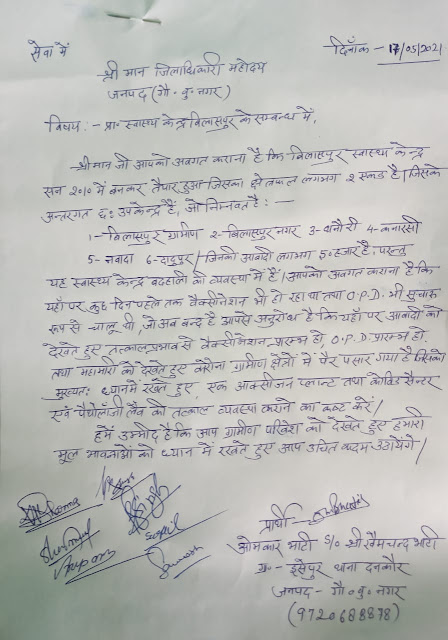 सेवा में
दिनाँक - 17/05/2021
श्री मान जिलाधिकारी महोदय
जनपद (गौ॰ बु॰ नगर)
विषय :- प्रा॰ स्वास्थ्य केन्द्र बिलासपुर के सम्बन्ध में,
श्रीमान जी आपको अवगत कराना है कि बिलासपुर स्वास्थ्य केन्द्र
सन 2010 में बनकर तैयार हुआ जिसका क्षेत्रफल लगभग 2 एकड है, जिसके
अन्तरगत छः उपकेन्द्र हैं, जो निम्नवत है :-
1- बिलासपुर ग्रामीण 2- बिलासपुर नगर 3- धनौरी 4- कनारसी
5- नवादा 6- दादूपुर / जिनकी आबादी लगभग 50 हजार है; परन्तु
यह स्वास्थ्य केन्द्र बदहाली की व्यवस्था में है / आपको अवगत कराना है कि
यहाँ पर कुछ दिन पहले तक वैक्सीनेशन भी हो रहा था तथा O.P.D. भी सुचारू
रूप से चालू थी, जो अब बन्द है आपसे अनुरोध है कि यहाँ पर आबादी को
देखते हुए तत्काल प्रभाव से वैक्सीनेशन प्रारम्भ हो, O.P.D. प्रारम्भ हो
तथा महामारी को देखते हुए कोरोना ग्रामीण क्षेत्रों में पैर पसार गया है जिसको
मुख्यतः ध्यान में रखते हुए, एक आक्सीजन प्लान्ट तथा कोविड सैन्टर
एवं पैथोलॉजी लैब की तत्काल व्यवस्था कराने का कष्ट करें /
हमें उम्मीद है कि आप ग्रामीण परिवेश को देखते हुए हमारी
मूल भावनाओं को ध्यान में रखते हुए आप उचित कदम उठायेंगे -/
प्रार्थी
ओमकार भाटी S/o श्री खेमचन्द भाटी
ग्रा॰ - इसेपुर थाना दनकौर
जनपद - गौ॰ बु॰ नगर
(9720688878)